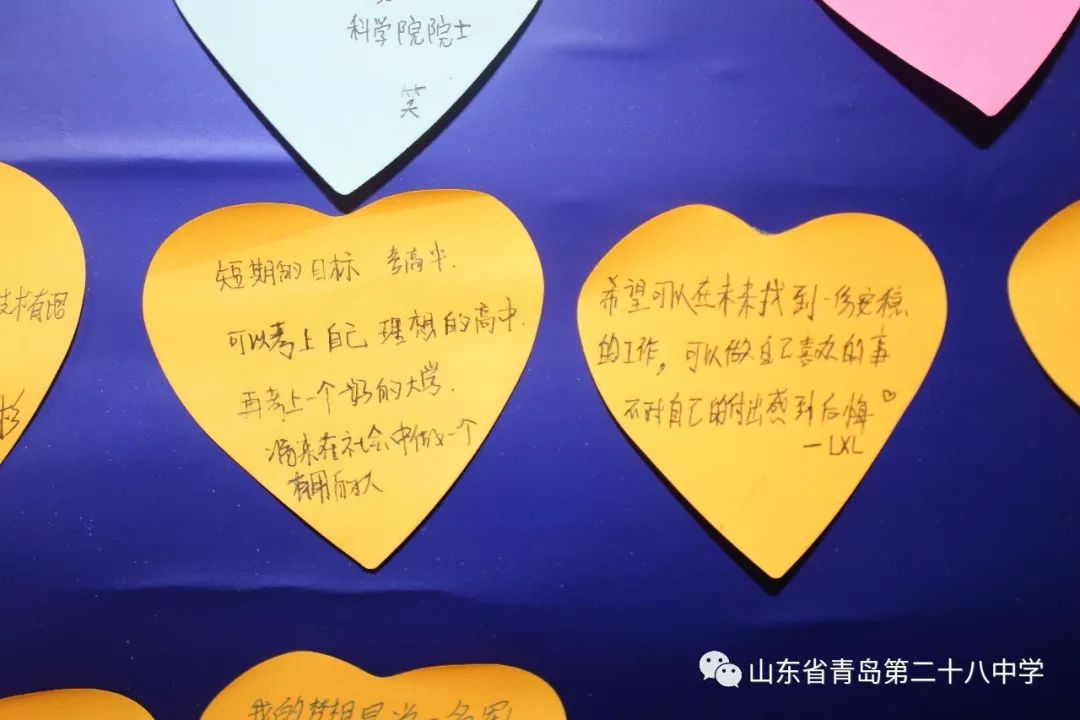 科学院院士
笑
短期的目标 考高中.
可以考上自己理想的高中.
再考上一个好的大学.
将来在社会中做一个
有用的人
希望可以在未来找到一份安稳
的工作，可以做自己喜欢的事
不对自己的付出感到后悔♡
—LXL
技术有
我的梦想是当一名
山东省青岛第二十八中学